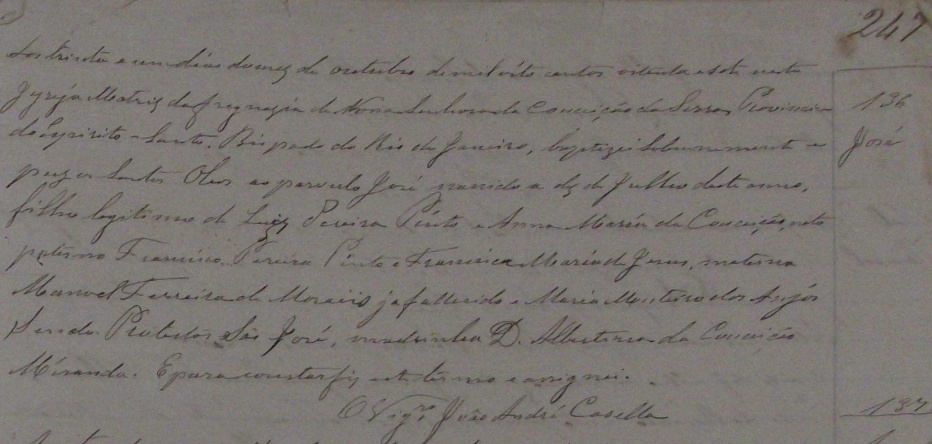 247
Aos trinta e um dias do mez de outubro de mil oito centos oitenta e sete nesta
Igreja Matriz da freguezia de Nossa Senhora da Conceição da Serra, Provincia
do Espirito-Santo. Bispado do Rio de Janeiro, baptizei solemnemente e
puz os Santos Oleos ao parvulo José nascido a dez de Julho deste anno,
filho legitimo de Luiz Pereira Pinto e Anna Maria da Conceição, neto
paterno Francisco Pereira Pinto e Francisca Maria de Jesus, materno
Manoel Ferreira de Moraiis ja fallecido e Maria Monteiro dos Anjos
Sendo Protector São José, madrinha D. Albertina da Conceição
Miranda. E para constar fiz este termo e assignei.
O Vigr.º João André Casella
136
José
137